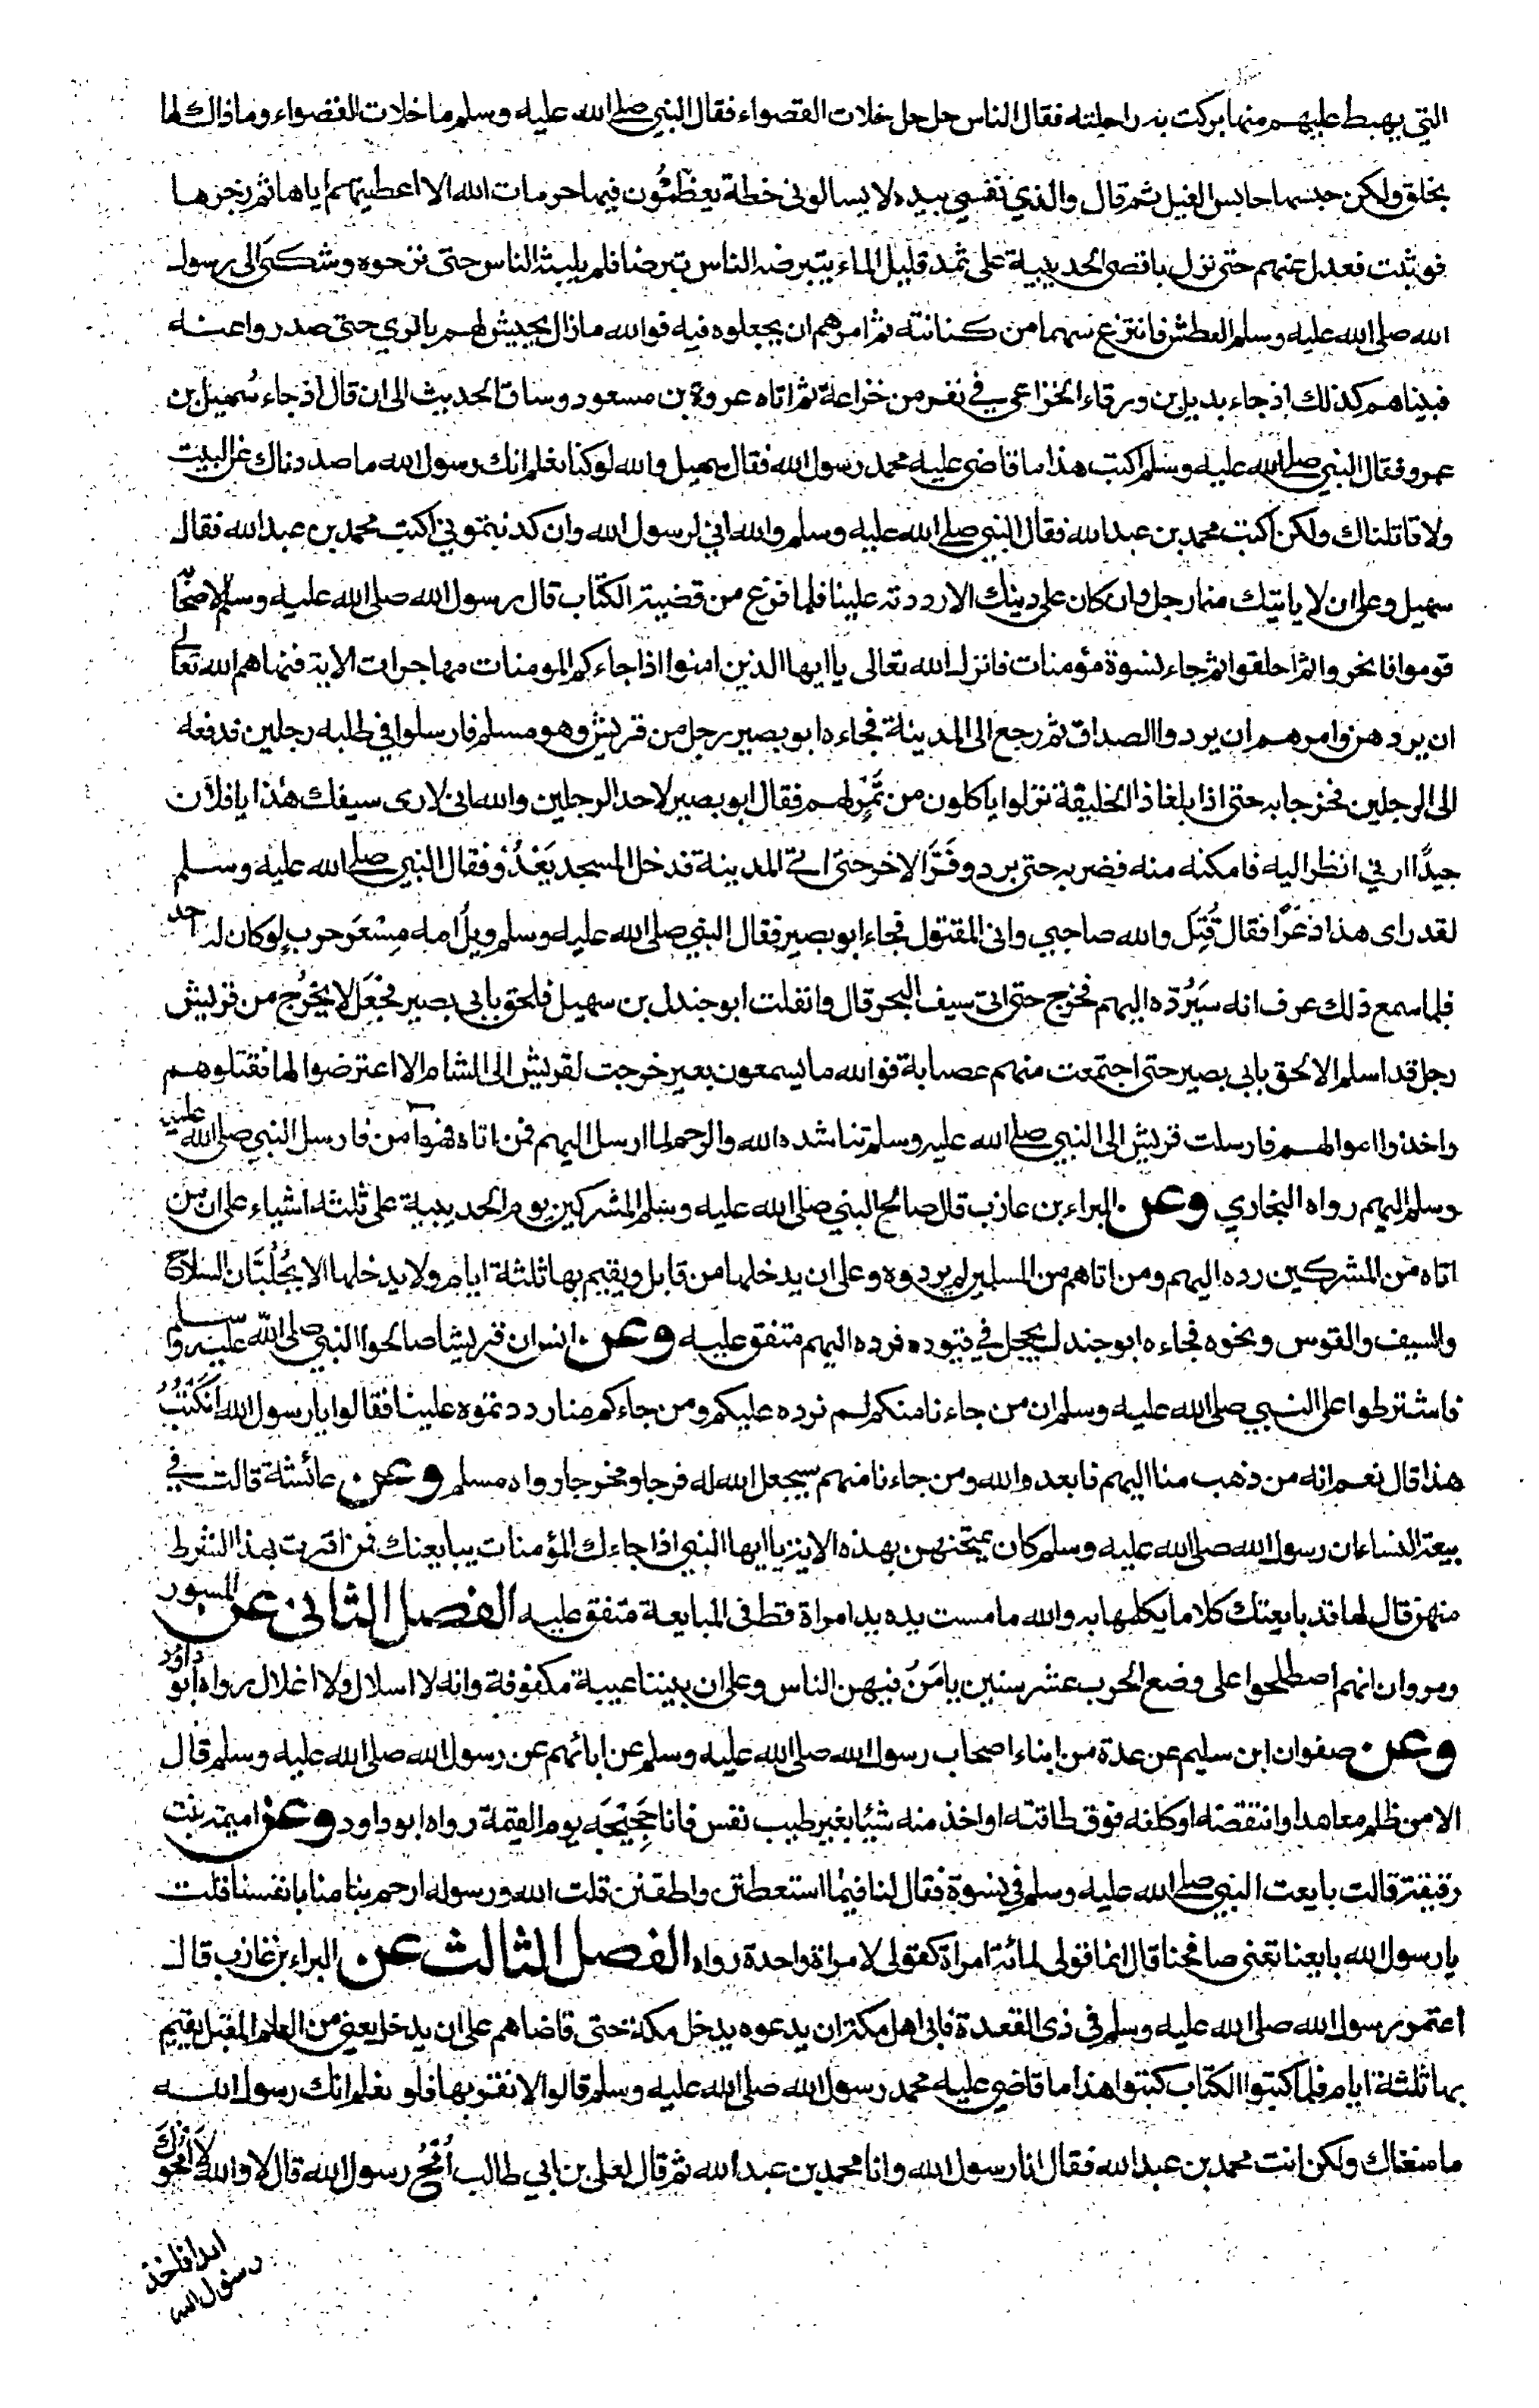 التي يهبط عليهم منها بركت به راحلته فقال الناس حل حل خلات القصواء فقال النبي صلى الله عليه وسلم ما خلات القصواء وما ذاك لها
بخلق ولكن حبسها حابس الفيل ثم قال والذي نفسي بيده لا يسالوني خطة يعظمون فيها حرمات الله الا اعطيتهم اياها ثم زجرها
فوثبت فعدل عنهم حتى نزل باقصى الحديبية على ثمد قليل الماء يتبرضه الناس تبرضا فلم يلبثه الناس حتى نزحوه وشكى الى رسول
الله صلى الله عليه وسلم العطش فانتزع سهما من كنانته ثم امرهم ان يجعلوه فيه فوالله ما زال يجيش لهم بالري حتى صدروا عنه
فبيناهم كذلك اذ جاء بديل بن ورقاء الخزاعي في نفر من خزاعة ثم اتاه عروة بن مسعود وساق الحديث الى ان قال اذ جاء سهيل بن
عمرو فقال النبي صلى الله عليه وسلم اكتب هذا ما قاضى عليه محمد رسول الله فقال سهيل والله لو كنا نعلم انك رسول الله ما صددناك عن البيت
ولا قاتلناك ولكن اكتب محمد بن عبد الله فقال النبي صلى الله عليه وسلم والله اني لرسول الله وان كذبتموني اكتب محمد بن عبد الله فقال
سهيل وعلى ان لا ياتيك منا رجل وان كان على دينك الا رددته علينا فلما فرغ من قضية الكتاب قال رسول الله صلى الله عليه وسلم لاصحابه
قوموا فانحروا ثم احلقوا ثم جاء نسوة مؤمنات فانزل الله تعالى يا ايها الذين امنوا اذا جاءكم المومنات مهاجرات الاية فنهاهم الله تعالى
ان يردوهن وامرهم ان يردوا الصداق ثم رجع الى المدينة فجاءه ابو بصير رجل من قريش وهو مسلم فارسلوا في طلبه رجلين فدفعه
الى الرجلين فخرجا به حتى اذا بلغا ذا الحليفة نزلوا ياكلون من تمر لهم فقال ابو بصير لاحد الرجلين والله اني لارى سيفك هذا يا فلان
جيدًا ارني انظر اليه فامكنه منه فضربه حتى برد وفَرَّ الاخر حتى اتى المدينة فدخل المسجد يَعْدُوْ فقال النبي صلى الله عليه وسلم
لقد راى هذا ذعرًا فقال قُتِلَ والله صاحبي واني لمقتول فجاء ابو بصير فقال النبي صلى الله عليه وسلم ويلُ امه مِسْعَر حربٍ لو كان له احد
فلما سمع ذلك عرف انه سَيَرُدّه اليهم فخرج حتى اتى سيف البحر قال وانفلت ابو جندل بن سهيل فلحق بابي بصير فجعَل لا يخرُج من قريش
رجل قد اسلم الا لحق بابي بصير حتى اجتمعت منهم عصابة فوالله ما يسمعون بعير خرجت لقريش الى الشام الا اعترضوا لها فقتلوهم
واخذوا اموالهم فارسلت قريش الى النبي صلى الله عليه وسلم تناشده الله والرحم لما ارسل اليهم فمن اتاه فهو آمن فارسل النبي صلى الله عليه
وسلم اليهم رواه البخاري وعن البراء بن عازب قال صالح النبي صلى الله عليه وسلم المشركين يوم الحديبية على ثلثة اشياء على ان من
اتاه من المشركين رده اليهم ومن اتاهم من المسلمين لم يردوه وعلى ان يدخلها من قابل ويقيم بها ثلثة ايام ولا يدخلها الا بجُلُبَّان السلاح
والسيف والقوس ونحوه فجاءه ابو جندل يحجل في قيوده فرده اليهم متفق عليه وعن انس ان قريشا صالحوا النبي صلى الله عليه وسلم
فاشترطوا على النبي صلى الله عليه وسلم ان من جاءنا منكم لم نرده عليكم ومن جاءكم منا رددتموه علينا فقالوا يا رسول الله اَنَكْتُبُ
هذا قال نعم انه من ذهب منا اليهم فابعده الله ومن جاءنا منهم سيجعل الله له فرجا ومخرجا رواه مسلم وعن عائشة قالت في
بيعة النساء ان رسول الله صلى الله عليه وسلم كان يمتحنهن بهذه الاية يا ايها النبي اذا جاءك المؤمنات يبايعنك فمن اقرت بهذا الشرط
منهن قال لها قد بايعتك كلاما يكلمها به والله ما مست يده يد امراة قط في المبايعة متفق عليه الفصل الثاني عن المسور
ومروان انهم اصطلحوا على وضع الحرب عشر سنين يامَنُ فيهن الناس وعلى ان بيننا عيبة مكفوفة وانه لا اسلال ولا اغلال رواه ابو داود
وعن صفوان ابن سليم عن عدة من ابناء اصحاب رسول الله صلى الله عليه وسلم عن ابائهم عن رسول الله صلى الله عليه وسلم قال
الا من ظلم معاهدا او انتقصه او كلفه فوق طاقته او اخذ منه شيئا بغير طيب نفس فانا حَجِيْجُه يوم القيمة رواه ابو داود وعن اميمة بنت
رقيقة قالت بايعت النبي صلى الله عليه وسلم في نسوة فقال لنا فيما استعطتن واطقتن قلت الله ورسوله ارحم بنا منا بانفسنا قلت
يا رسول الله بايعنا تعني صافحنا قال انما قولي لمائة امراة كقولي لامراة واحدة رواه الفصل الثالث عن البراء بن عازب قال
اعتمر رسول الله صلى الله عليه وسلم في ذي القعدة فابى اهل مكة ان يدعوه يدخل مكة حتى قاضاهم على ان يدخل يعني من العام المقبل يقيم
بها ثلثة ايام فلما كتبوا الكتاب كتبوا هذا ما قاضى عليه محمد رسول الله صلى الله عليه وسلم قالوا لا نقر بها فلو نعلم انك رسول الله
ما منعناك ولكن انت محمد بن عبد الله فقال انا رسول الله وانا محمد بن عبد الله ثم قال لعلي بن ابي طالب اُمْحُ رسول الله قال لا والله لا اَمْحُوكَ
ابدا فاخذ
رسول الله